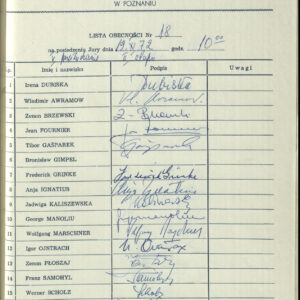 W POZNANIU
LISTA OBECNOŚCI Nr 18
na posiedzeniu Jury dnia 19.XI.72 godz. 10⁰⁰
II etapu
Lp. Imię i nazwisko Podpis Uwagi
1 Irena DUBISKA Dubiska
2 Wladimir AWRAMOW
3 Zenon BRZEWSKI Z. Brzewski
4 Jean FOURNIER
5 Tibor GAŠPAREK Gašparek
6 Bronisław GIMPEL
7 Frederick GRINKE Frederick Grinke
8 Anja IGNATIUS Anja Ignatius
9 Jadwiga KALISZEWSKA
10 George MANOLIU
11 Wolfgang MARSCHNER
12 Igor OJSTRACH
13 Zenon PŁOSZAJ
14 Franz SAMOHYL Samohyl
15 Werner SCHOLZ Scholz